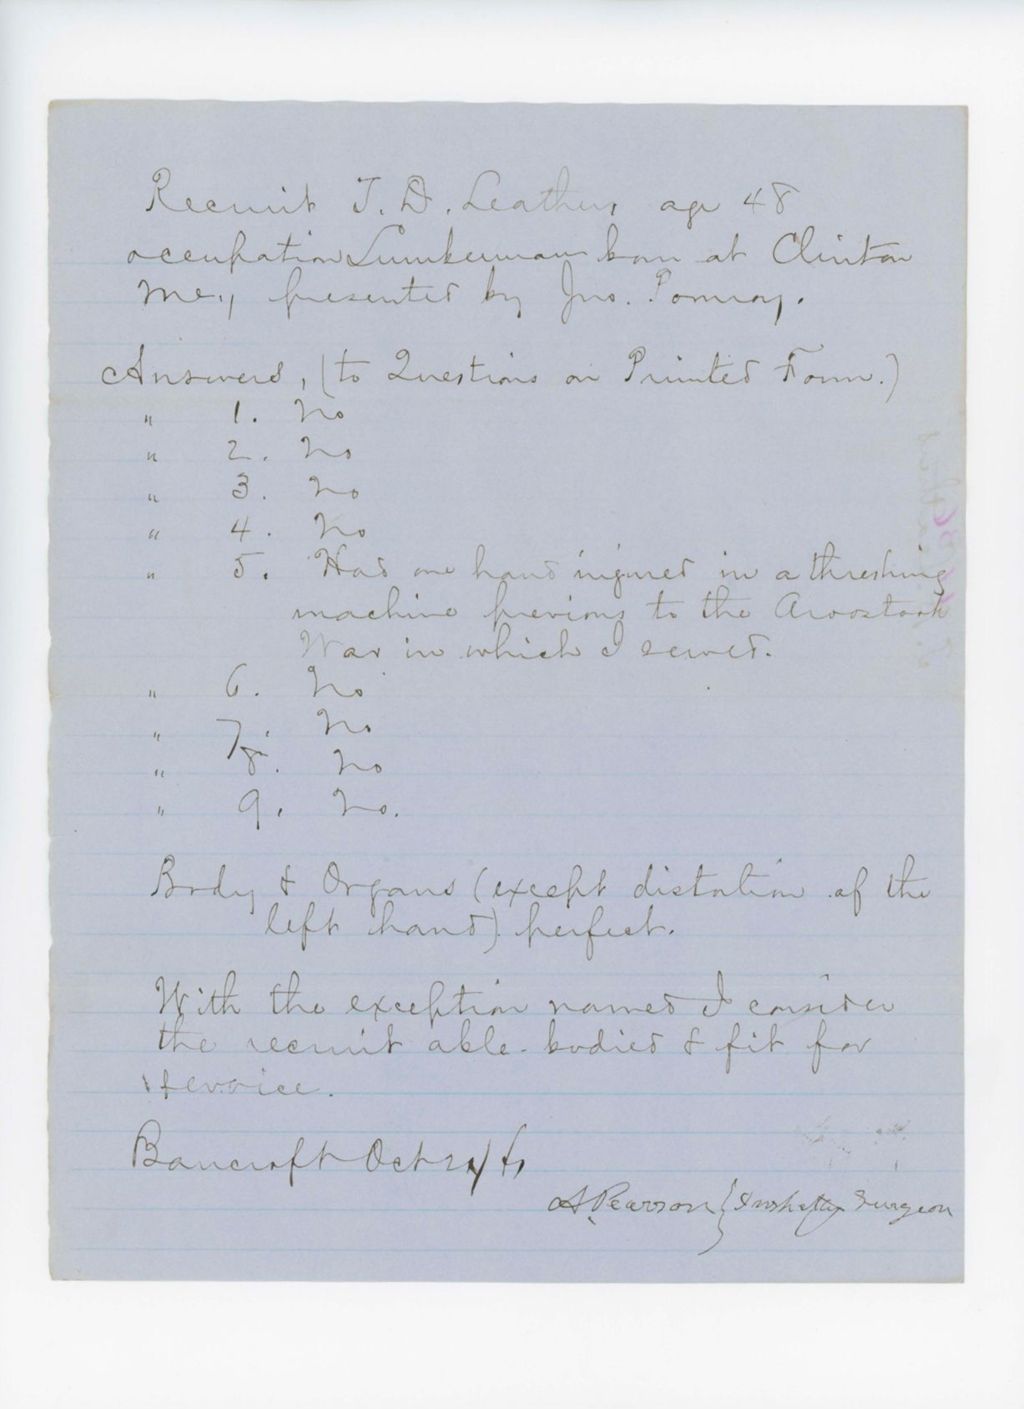 Recruit J. D. Leathers age 48
occupation Lumberman born at Clinton
Me., presented by Jno. Pomroy.
Answers, (to Questions on Printed Form.)
" 1. No
" 2. No
" 3. No
" 4. No
" 5. Had one hand injured in a threshing
machine previous to the Aroostook
War in which I served.
" 6. No
" 7. No
" 8. No
" 9. No.
Body & Organs (except distortion of the
left hand) perfect.
With the exception named I consider
the recruit able-bodied & fit for
service.
Bancroft Oct
A. Pearson } Inspectg Surgeon